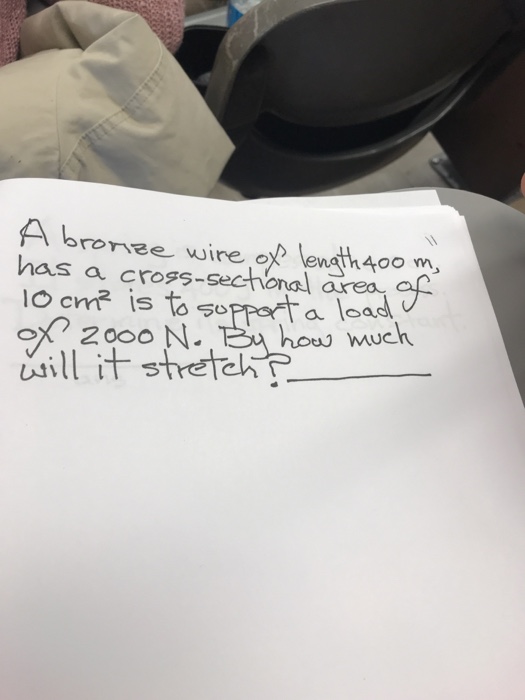 A bronze wire of length 400 m,
has a cross-sectional area of
10 cm² is to support a load
of 2000 N. By how much
will it stretch? ________